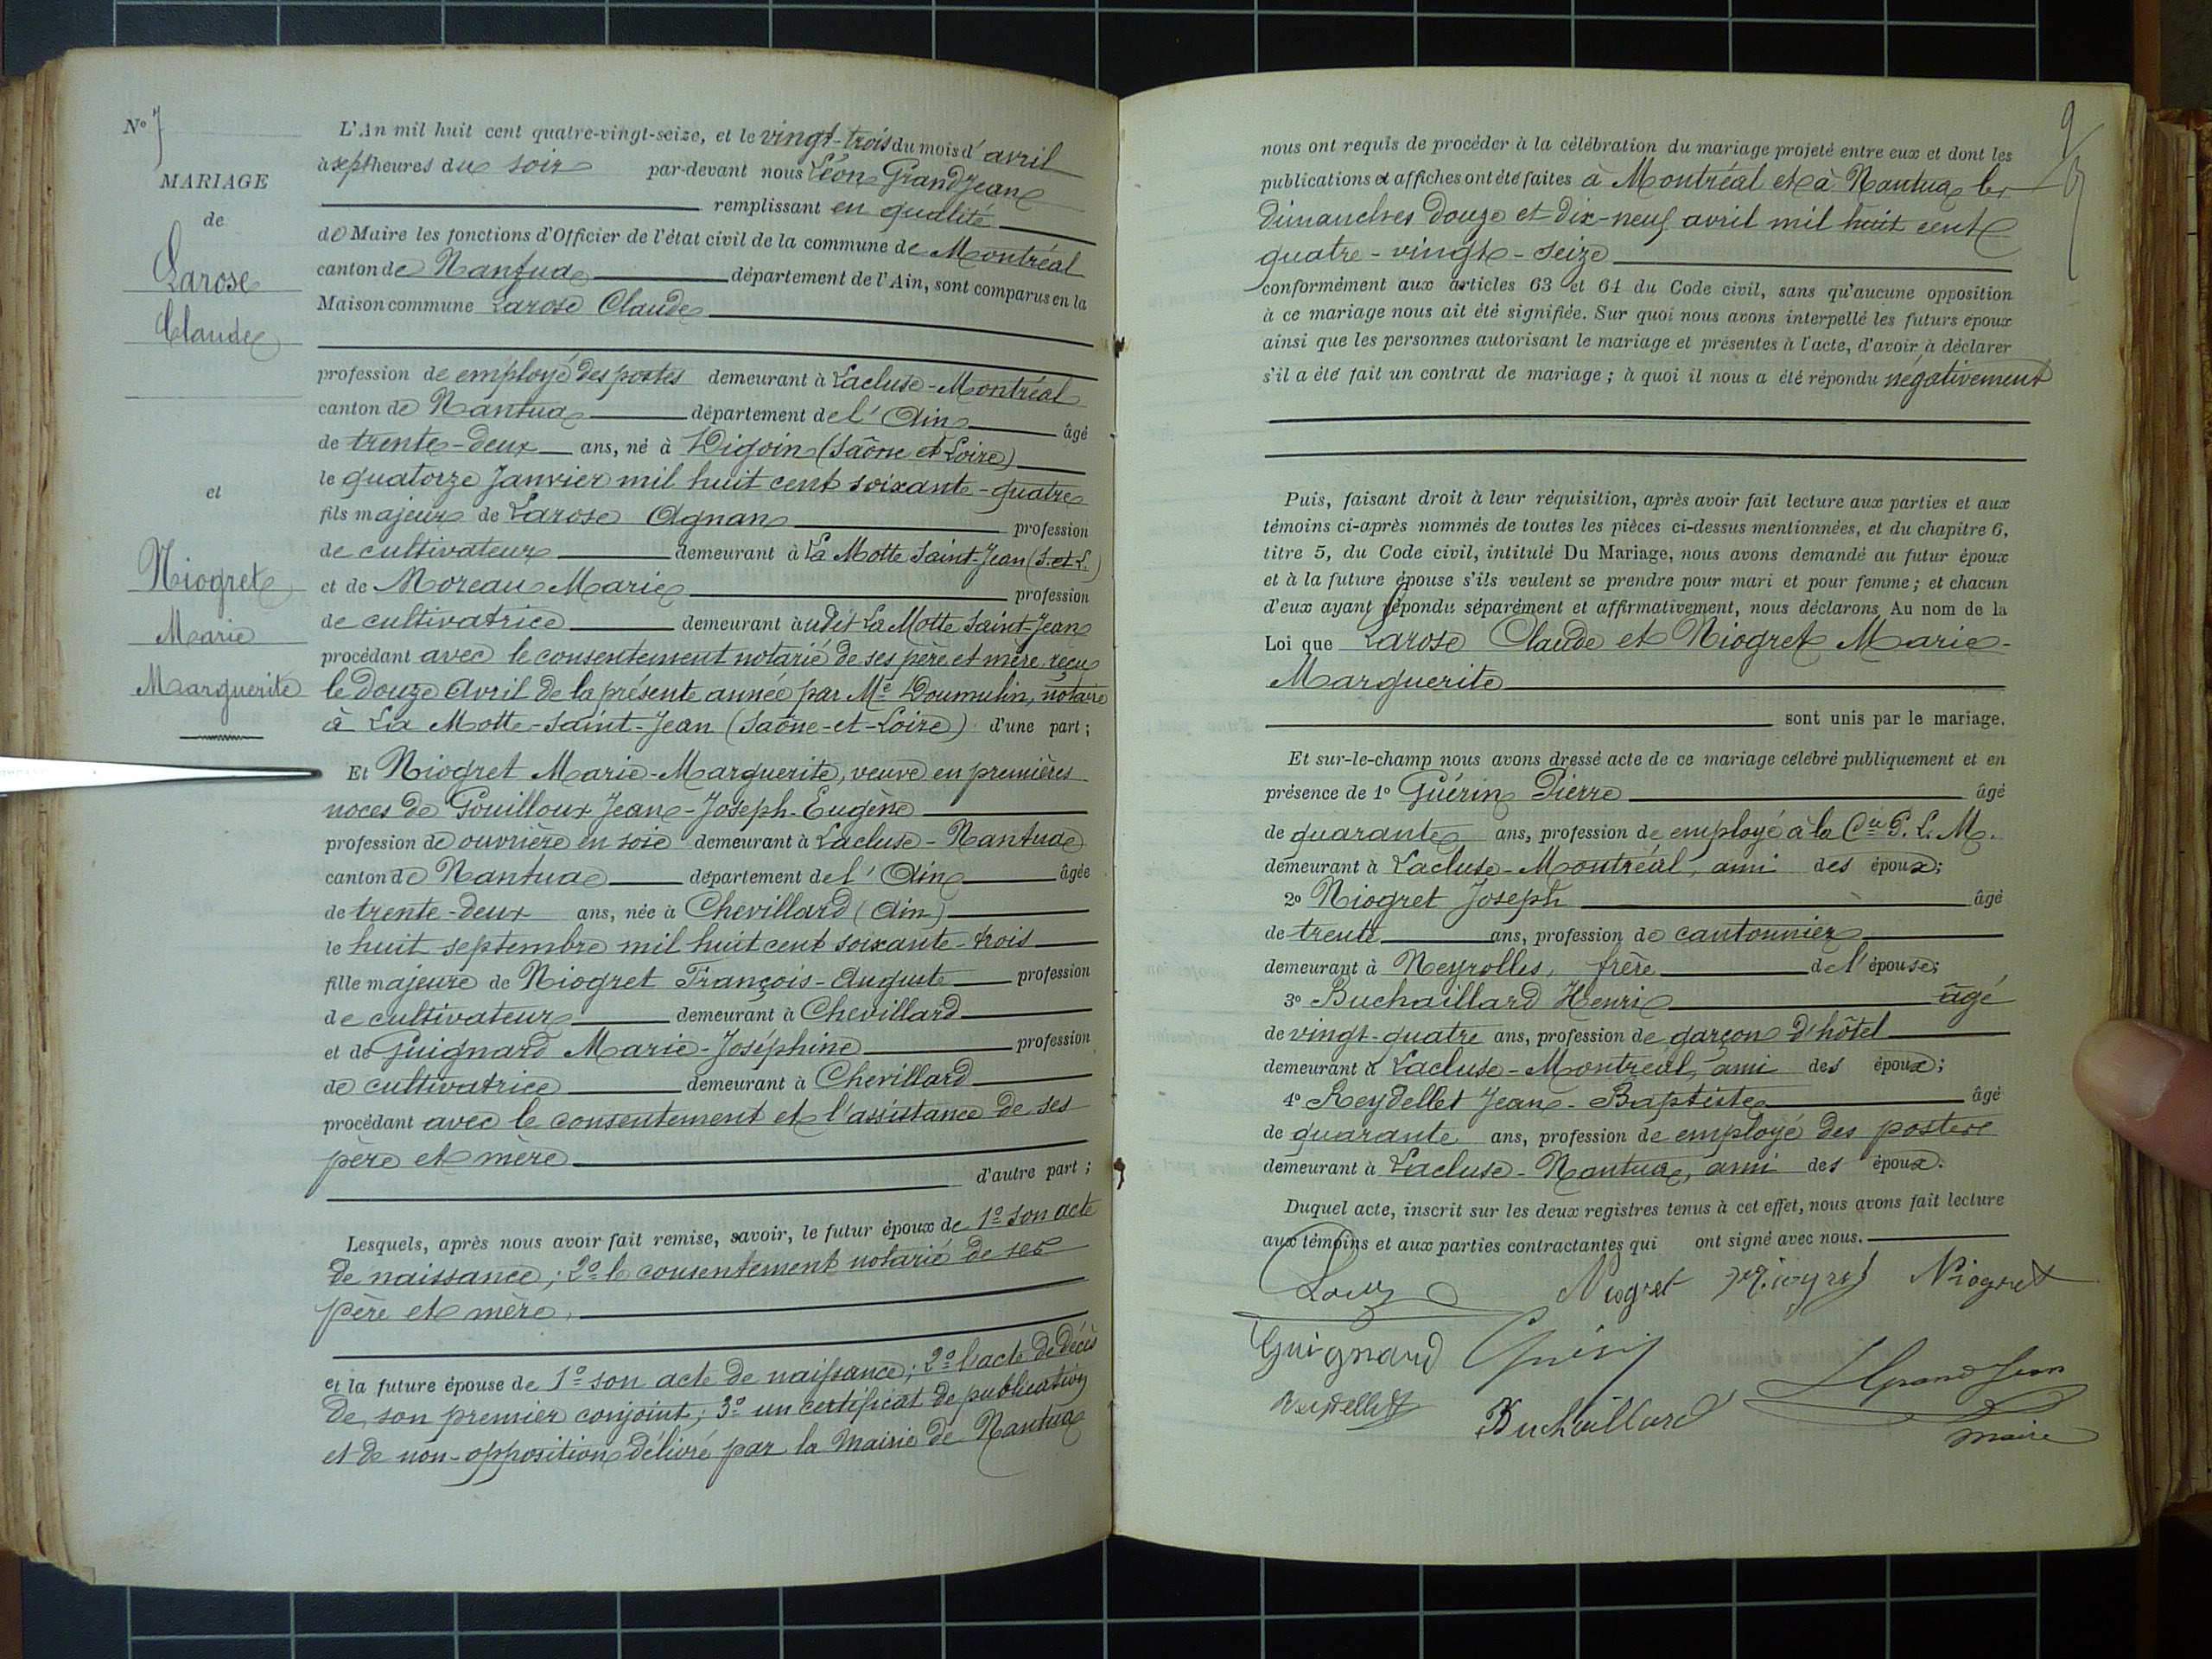 N° 7
MARIAGE
de
Larose
Claude
et
Niogret
Marie
Marguerite
L'An mil huit cent quatre-vingt-seize, et le vingt-trois du mois d'avril
à sept heures du soir par-devant nous Léon Grandjean
remplissant en qualité
de Maire les fonctions d'Officier de l'état civil de la commune de Montréal
canton de Nantua département de l'Ain, sont comparus en la
Maison commune Larose Claude
profession de employé des postes demeurant à Lacluse-Montréal
canton de Nantua département de l'Ain âgé
de trente-deux ans, né à Digoin (Saône et Loire)
le quatorze Janvier mil huit cent soixante-quatre
fils majeur de Larose Agnan profession
de cultivateur demeurant à La Motte Saint-Jean (S.et.L.)
et de Moreau Marie profession
de cultivatrice demeurant audit La Motte Saint-Jean
procédant avec le consentement notarié de ses père et mère reçu
le douze Avril de la présente année par Me Doumulin, notaire
à La Motte-Saint-Jean (Saône-et-Loire) d'une part ;
Et Niogret Marie-Marguerite, veuve en premières
noces de Gouilloux Jean-Joseph-Eugène
profession de ouvrière en soie demeurant à Lacluse-Nantua
canton de Nantua département de l'Ain âgée
de trente-deux ans, née à Chevillard (Ain)
le huit septembre mil huit cent soixante-trois
fille majeure de Niogret François-Auguste profession
de cultivateur demeurant à Chevillard
et de Guignard Marie-Joséphine profession
de cultivatrice demeurant à Chevillard
procédant avec le consentement et l'assistance de ses
père et mère
d'autre part ;
Lesquels, après nous avoir fait remise, savoir, le futur époux de 1° son acte
de naissance ; 2° le consentement notarié de ses
père et mère,
et la future épouse de 1° son acte de naissance ; 2° l'acte de décès
de son premier conjoint ; 3° un certificat de publication
et de non-opposition délivré par la Mairie de Nantua
9
nous ont requis de procéder à la célébration du mariage projeté entre eux et dont les
publications et affiches ont été faites à Montréal et à Nantua les
dimanches douze et dix-neuf avril mil huit cent
quatre-vingt-seize
conformément aux articles 63 et 64 du Code civil, sans qu'aucune opposition
à ce mariage nous ait été signifiée. Sur quoi nous avons interpellé les futurs époux
ainsi que les personnes autorisant le mariage et présentes à l'acte, d'avoir à déclarer
s'il a été fait un contrat de mariage ; à quoi il nous a été répondu négativement
Puis, faisant droit à leur réquisition, après avoir fait lecture aux parties et aux
témoins ci-après nommés de toutes les pièces ci-dessus mentionnées, et du chapitre 6,
titre 5, du Code civil, intitulé Du Mariage, nous avons demandé au futur époux
et à la future épouse s'ils veulent se prendre pour mari et pour femme ; et chacun
d'eux ayant répondu séparément et affirmativement, nous déclarons Au nom de la
Loi que Larose Claude et Niogret Marie-
Marguerite
sont unis par le mariage.
Et sur-le-champ nous avons dressé acte de ce mariage célébré publiquement et en
présence de 1° Guérin Pierre âgé
de quarante ans, profession de employé à la Cie P. L. M.
demeurant à Lacluse-Montréal, ami des époux ;
2° Niogret Joseph âgé
de trente ans, profession de cantonnier
demeurant à Neyrolles, frère de l'épouse ;
3° Buchaillard Henri âgé
de vingt-quatre ans, profession de garçon d'hôtel
demeurant à Lacluse-Montréal, ami des époux ;
4° Reydellet Jean-Baptiste âgé
de quarante ans, profession de employé des postes
demeurant à Lacluse-Nantua, ami des époux.
Duquel acte, inscrit sur les deux registres tenus à cet effet, nous avons fait lecture
aux témoins et aux parties contractantes qui ont signé avec nous.
Niogret Niogret Niogret
Guignard Guérin LGrandJean
Reydellet Buchaillard maire